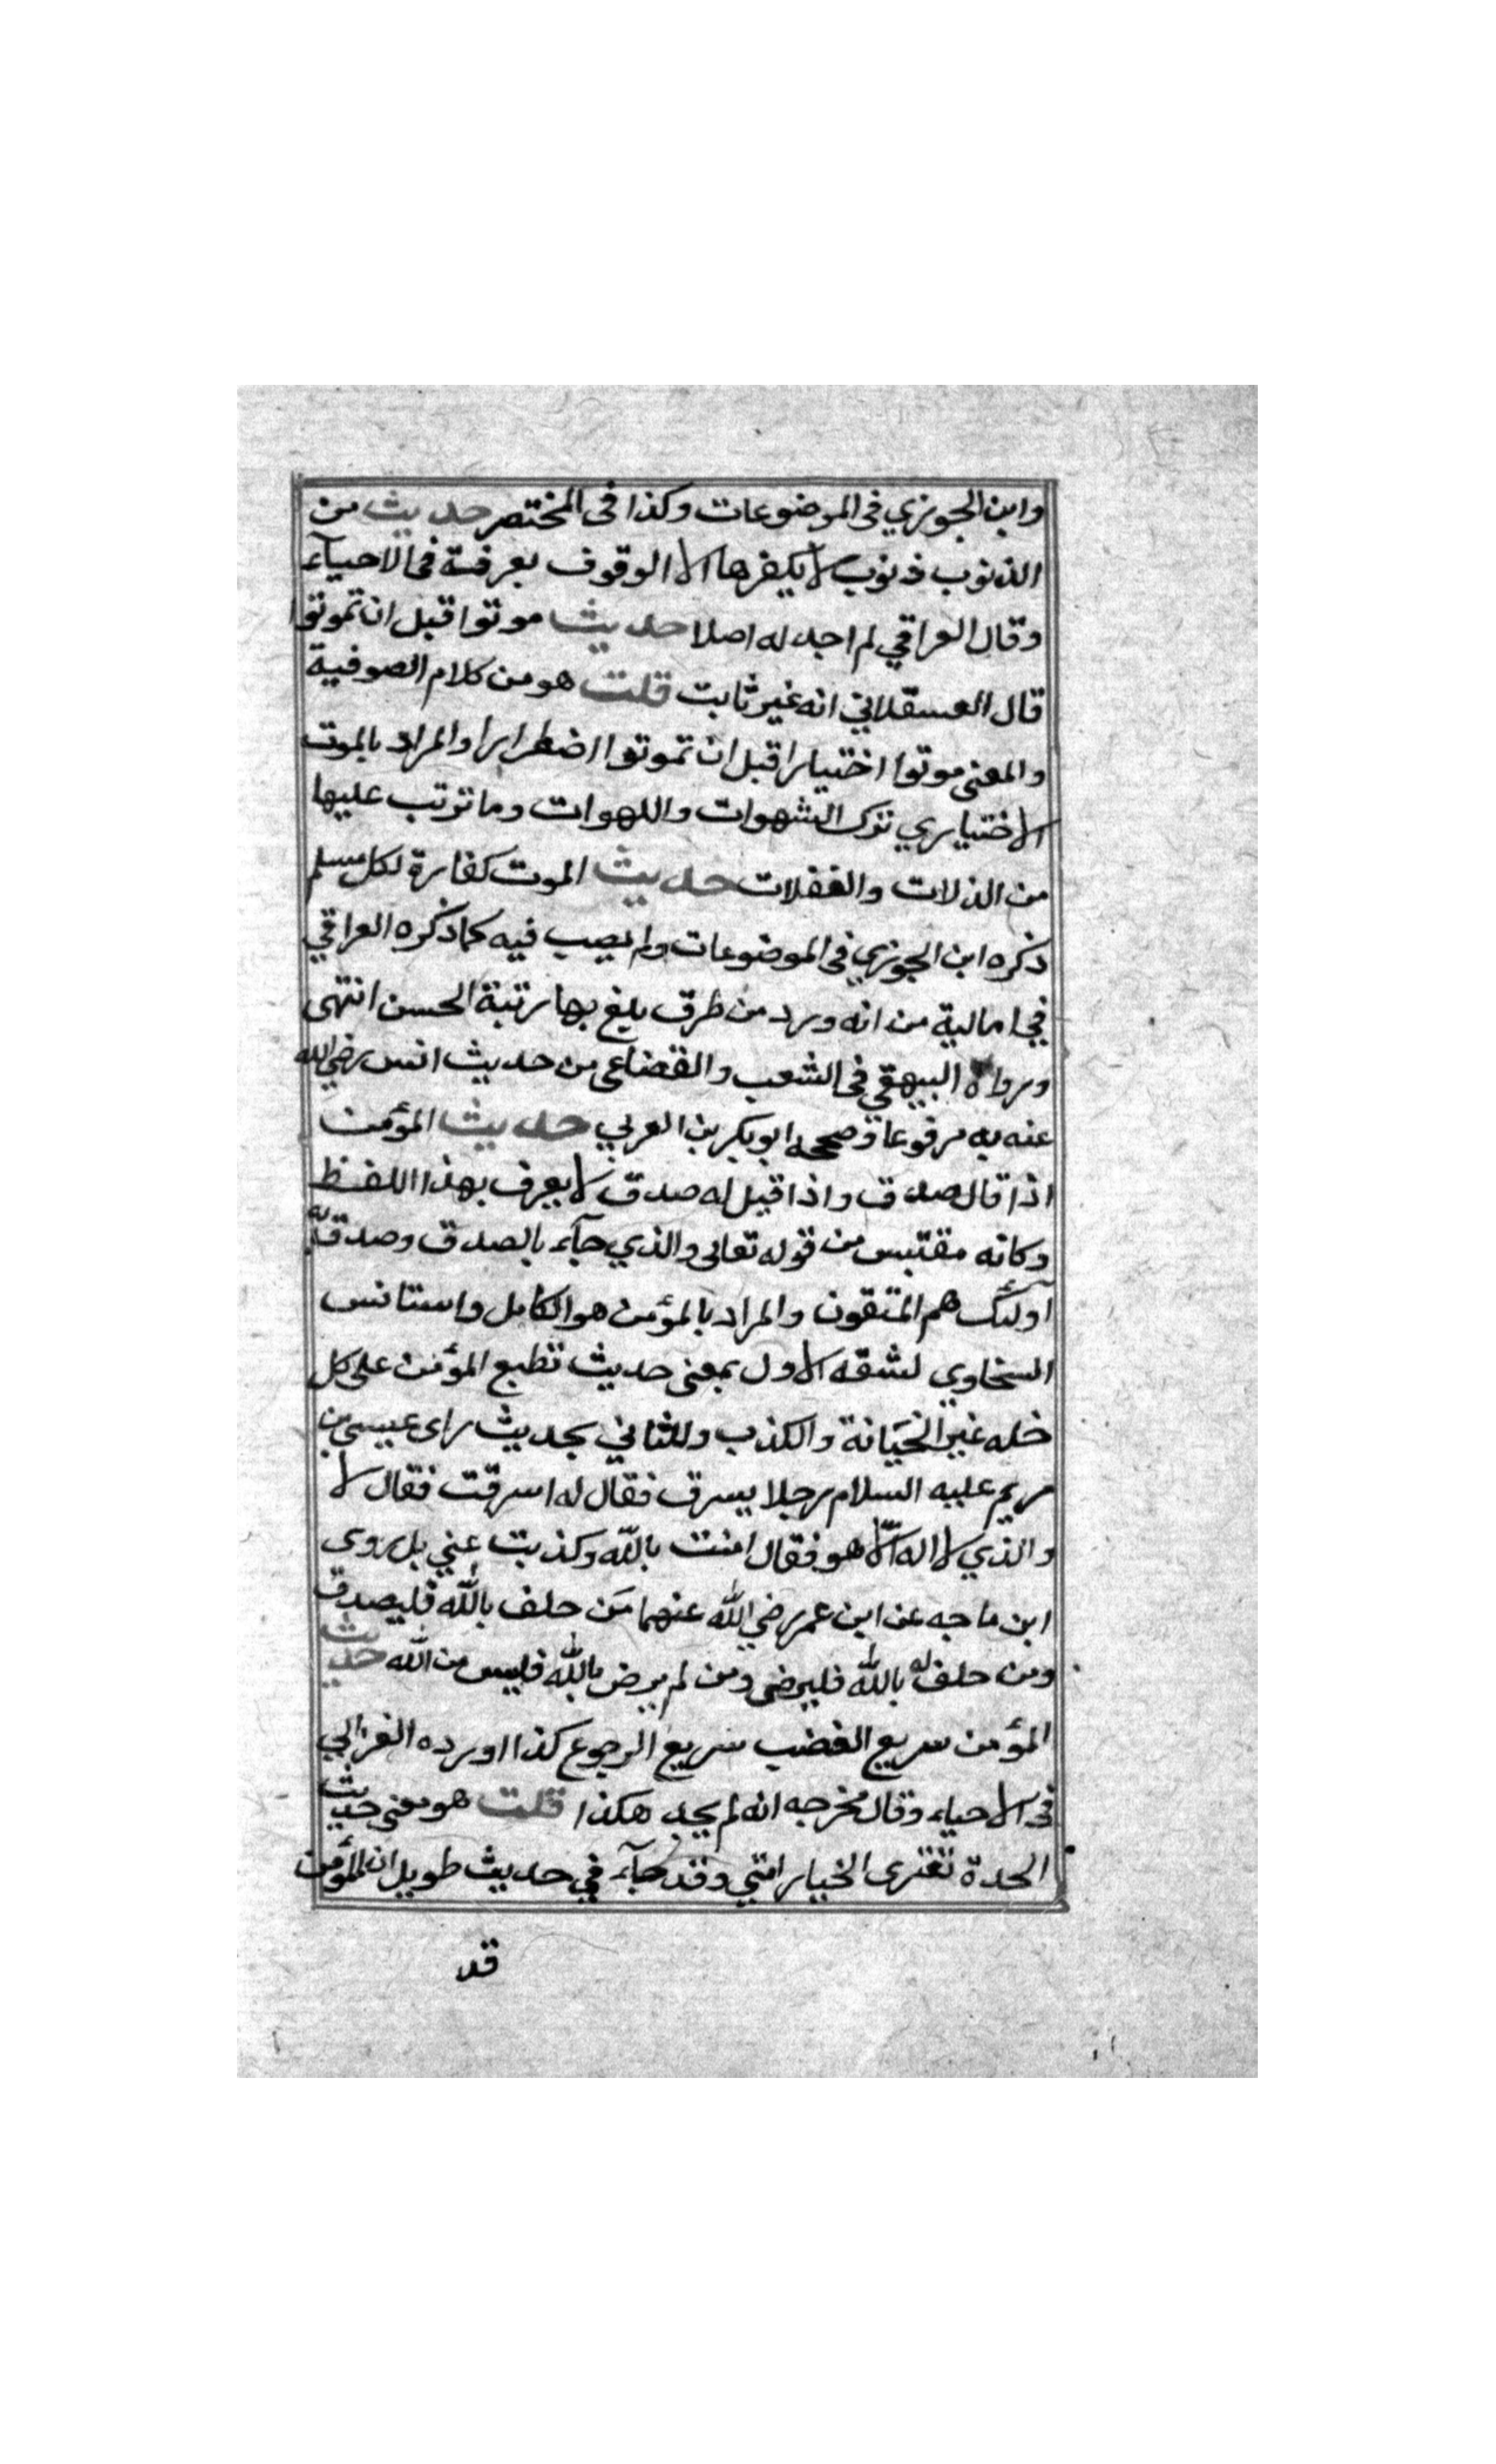 وابن الجوزي فى الموضوعات وكذا فى المختصر حديث من
الذنوب ذنوب لا يكفرها الا الوقوف بعرفة فى الاحياء
وقال العراقي لم اجد له اصلا حديث موتوا قبل ان تموتوا
قال العسقلاني انه غير ثابت قلت هو من كلام الصوفية
والمعنى موتوا اختيارا قبل ان تموتوا اضطرارا والمراد بالموت
الاختياري ترك الشهوات واللهوات وما ترتب عليها
من الذلات والغفلات حديث الموت كفارة لكل مسلم
ذكره ابن الجوزي فى الموضوعات ولم يصب فيه كما ذكره العراقي
في امالية من انه ورد من طرق بلغ بها رتبة الحسن انتهى
ورواه البيهقي فى الشعب والقضاعى من حديث انس رضي الله
عنه به مرفوعا وصححه ابو بكر بن العربي حديث المؤمن
اذا قال صدق واذا قيل له صدق لا يعرف بهذا اللفظ
وكانه مقتبس من قوله تعالى والذي جآء بالصدق وصدق به
اولئك هم المتقون والمراد بالمؤمن هو الكامل واستانس
السخاوي لشقه الاول بمعنى حديث تطبع المؤمن على كل
خله غير الخيانة والكذب وللثاني بحديث راى عيسى بن
مريم عليه السلام رجلا يسرق فقال له اسرقت فقال لا
والذي لا اله الّا هو فقال امنت بالله وكذبت عني بل روى
ابن ماجه عن ابن عمر رضي الله عنهما مَن حلف بالله فليصدق
ومن حلف له بالله فليرضى ومن لم يرض بالله فليس من الله حديث
المؤمن سريع الغضب سريع الرجوع كذا اورده الغزالي
فى الاحياء وقال مخرجه انه لم يجد هكذا قلت هو معنى حديث
الحدة تعترى الخيار امتي وقد جآء في حديث طويل ان المؤمن
قد